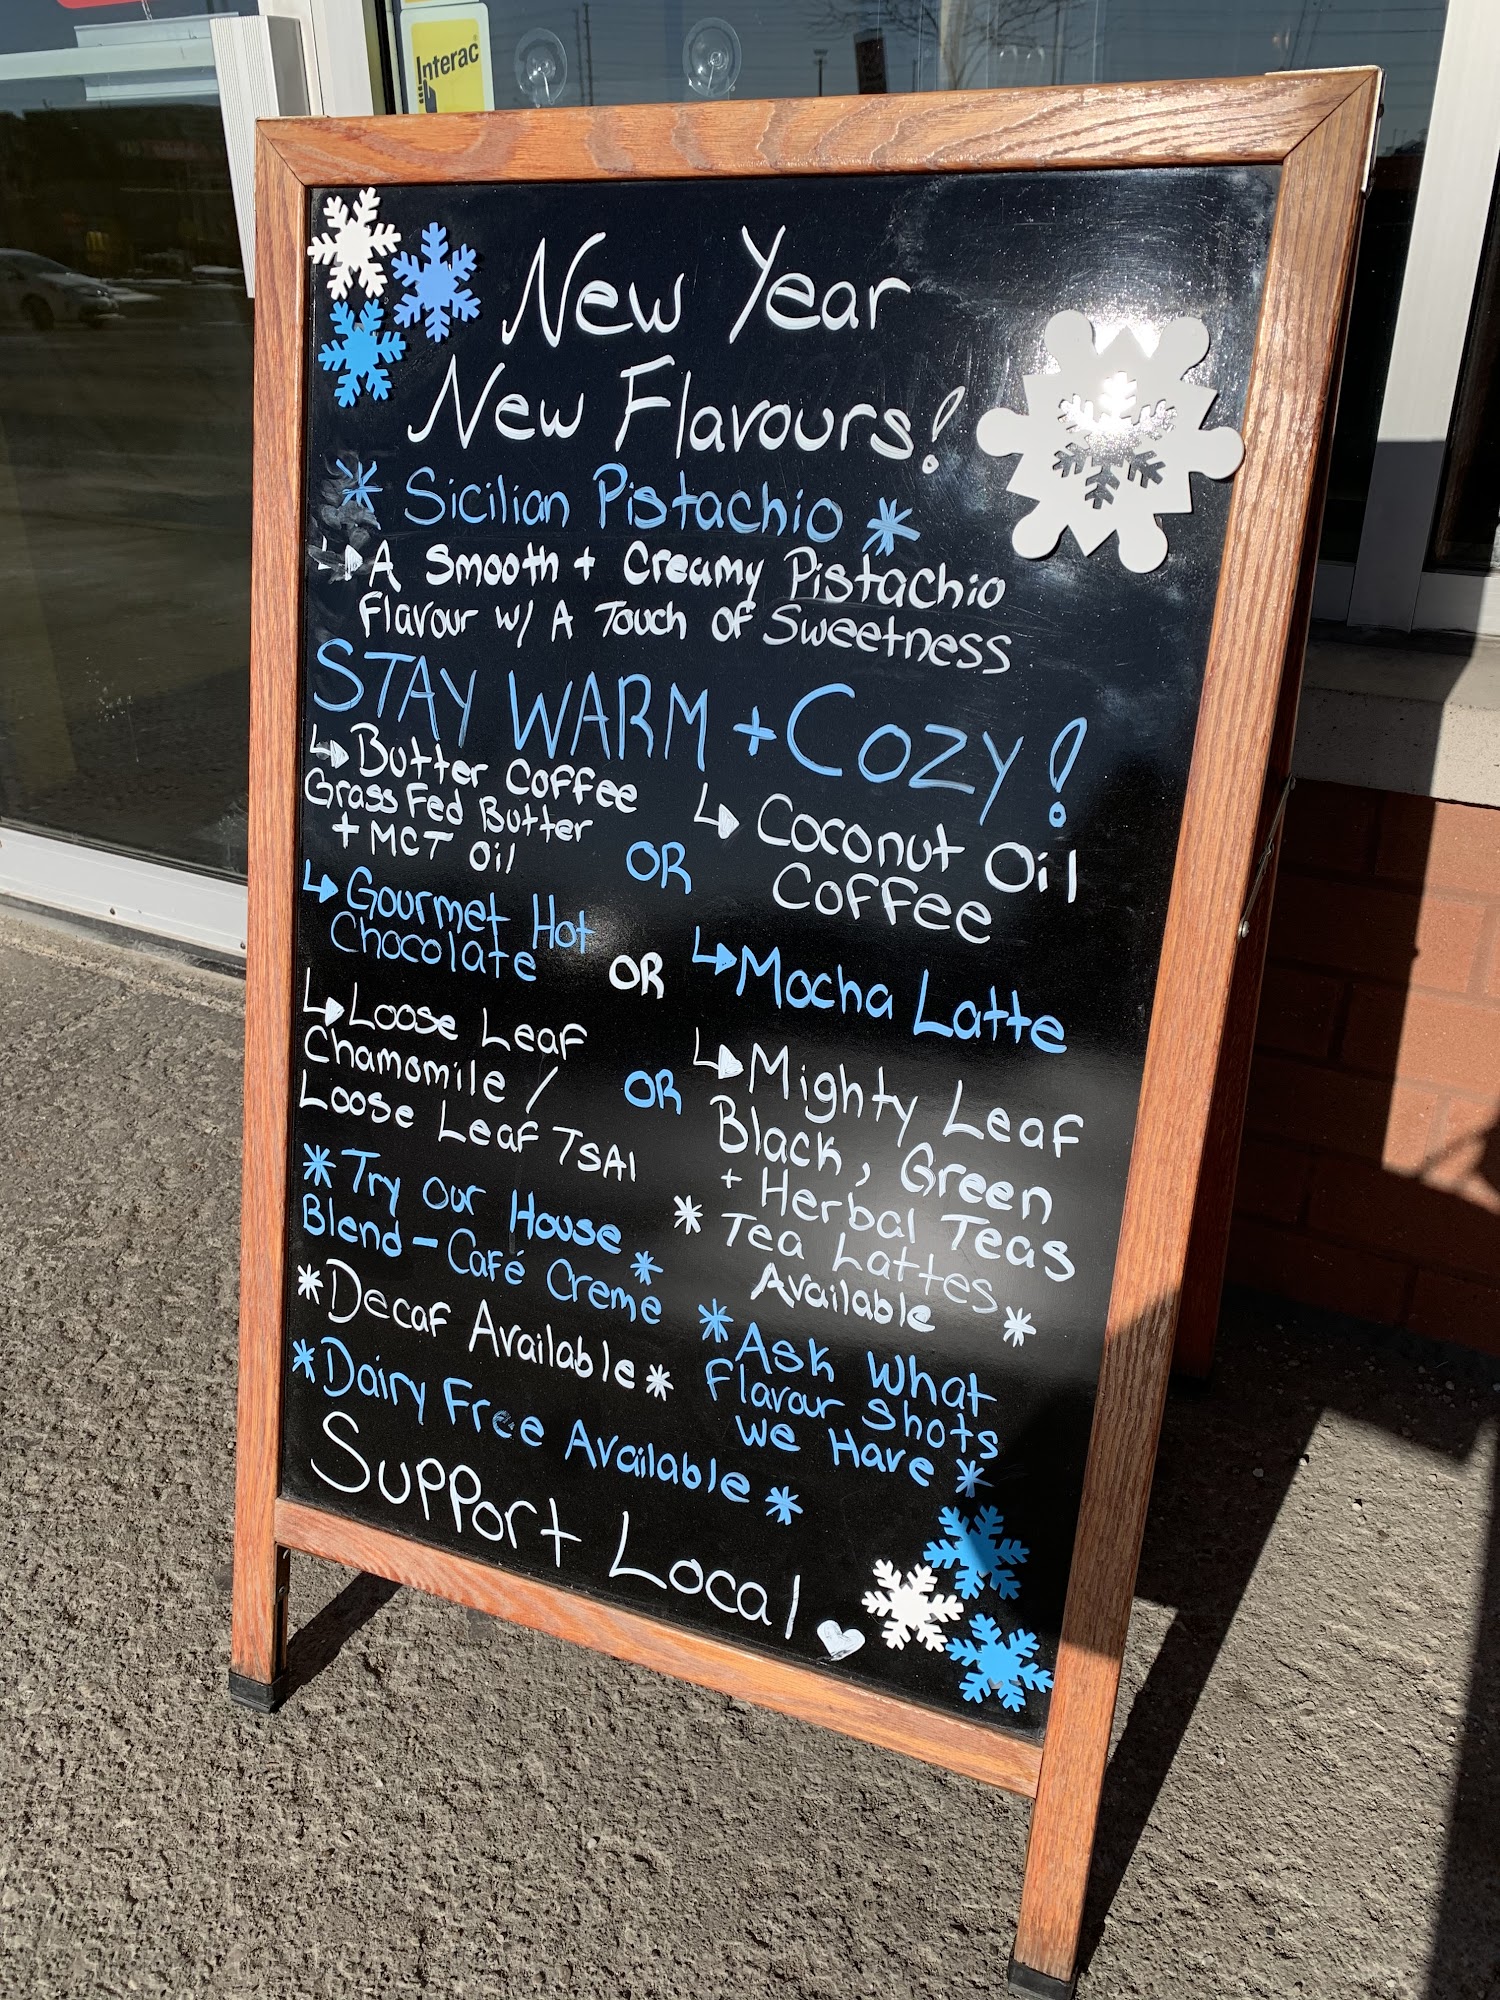 Interac
New Year
New Flavours!
* Sicilian Pistachio *
A Smooth + Creamy Pistachio
Flavour w/ A Touch OF Sweetness
STAY WARM + COZY!
Butter Coffee
Grass Fed Butter
+ MCT Oil
OR
Coconut Oil
Coffee
Gourmet Hot
Chocolate
OR
Mocha Latte
Loose Leaf
Chamomile /
Loose Leaf TSAI
OR
Mighty Leaf
Black, Green
+ Herbal Teas
* Tea Lattes
Available *
* Try Our House
Blend - Café Creme *
* Decaf Available *
* Dairy Free Available *
* Ask What
Flavour Shots
We Have *
Support Local